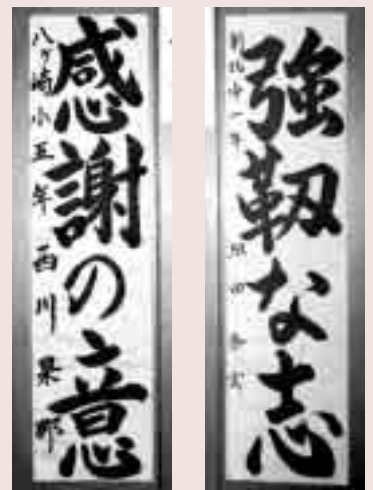 強靭な志
感謝の意
八ヶ崎小五年 西川